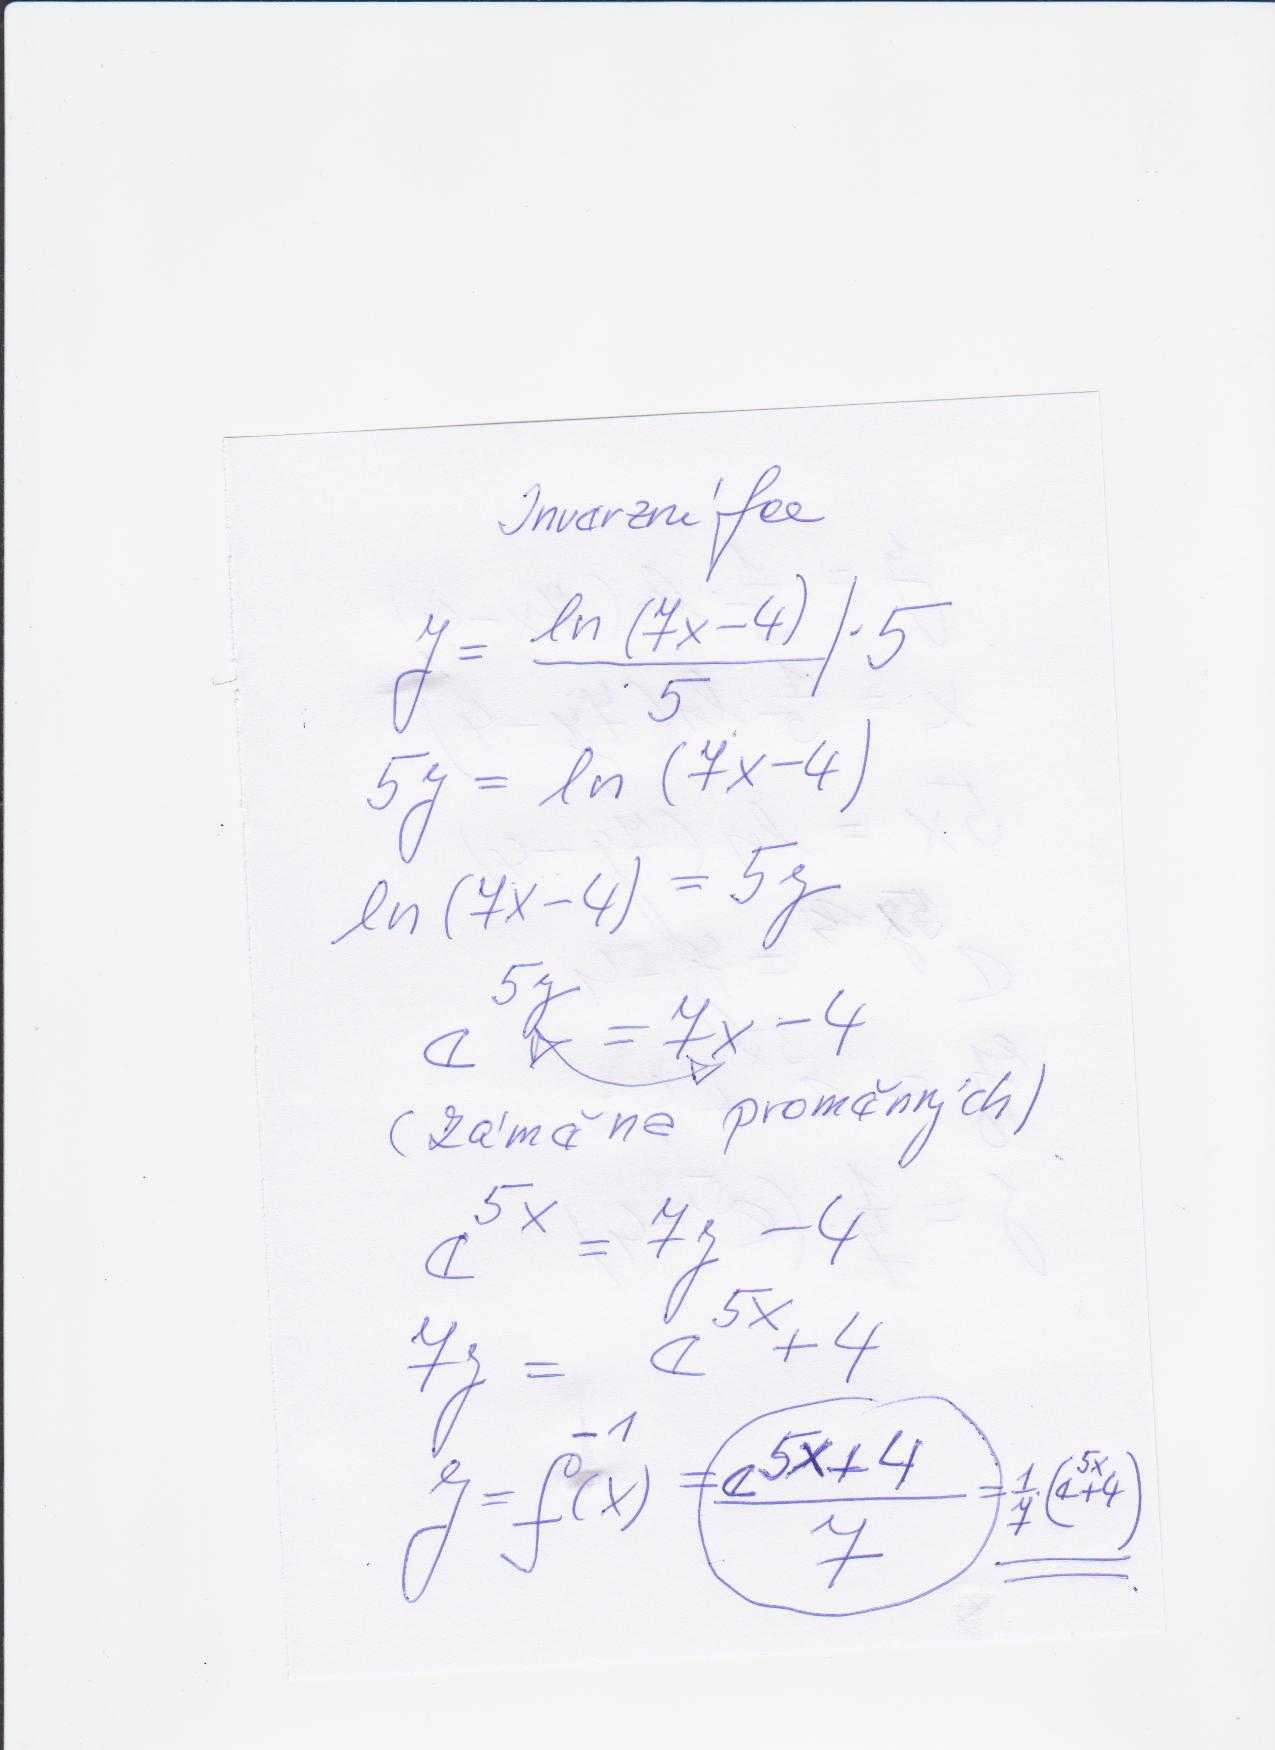 Inverzní fce
y = ln (7x-4) / 5 | · 5
5y = ln (7x-4)
ln (7x-4) = 5y
e^5y = 7x - 4
(záměna proměnných)
e^5x = 7y - 4
7y = e^5x + 4
y = f^-1(x) = e^5x+4 / 7 = 1/7 · (e^5x + 4)